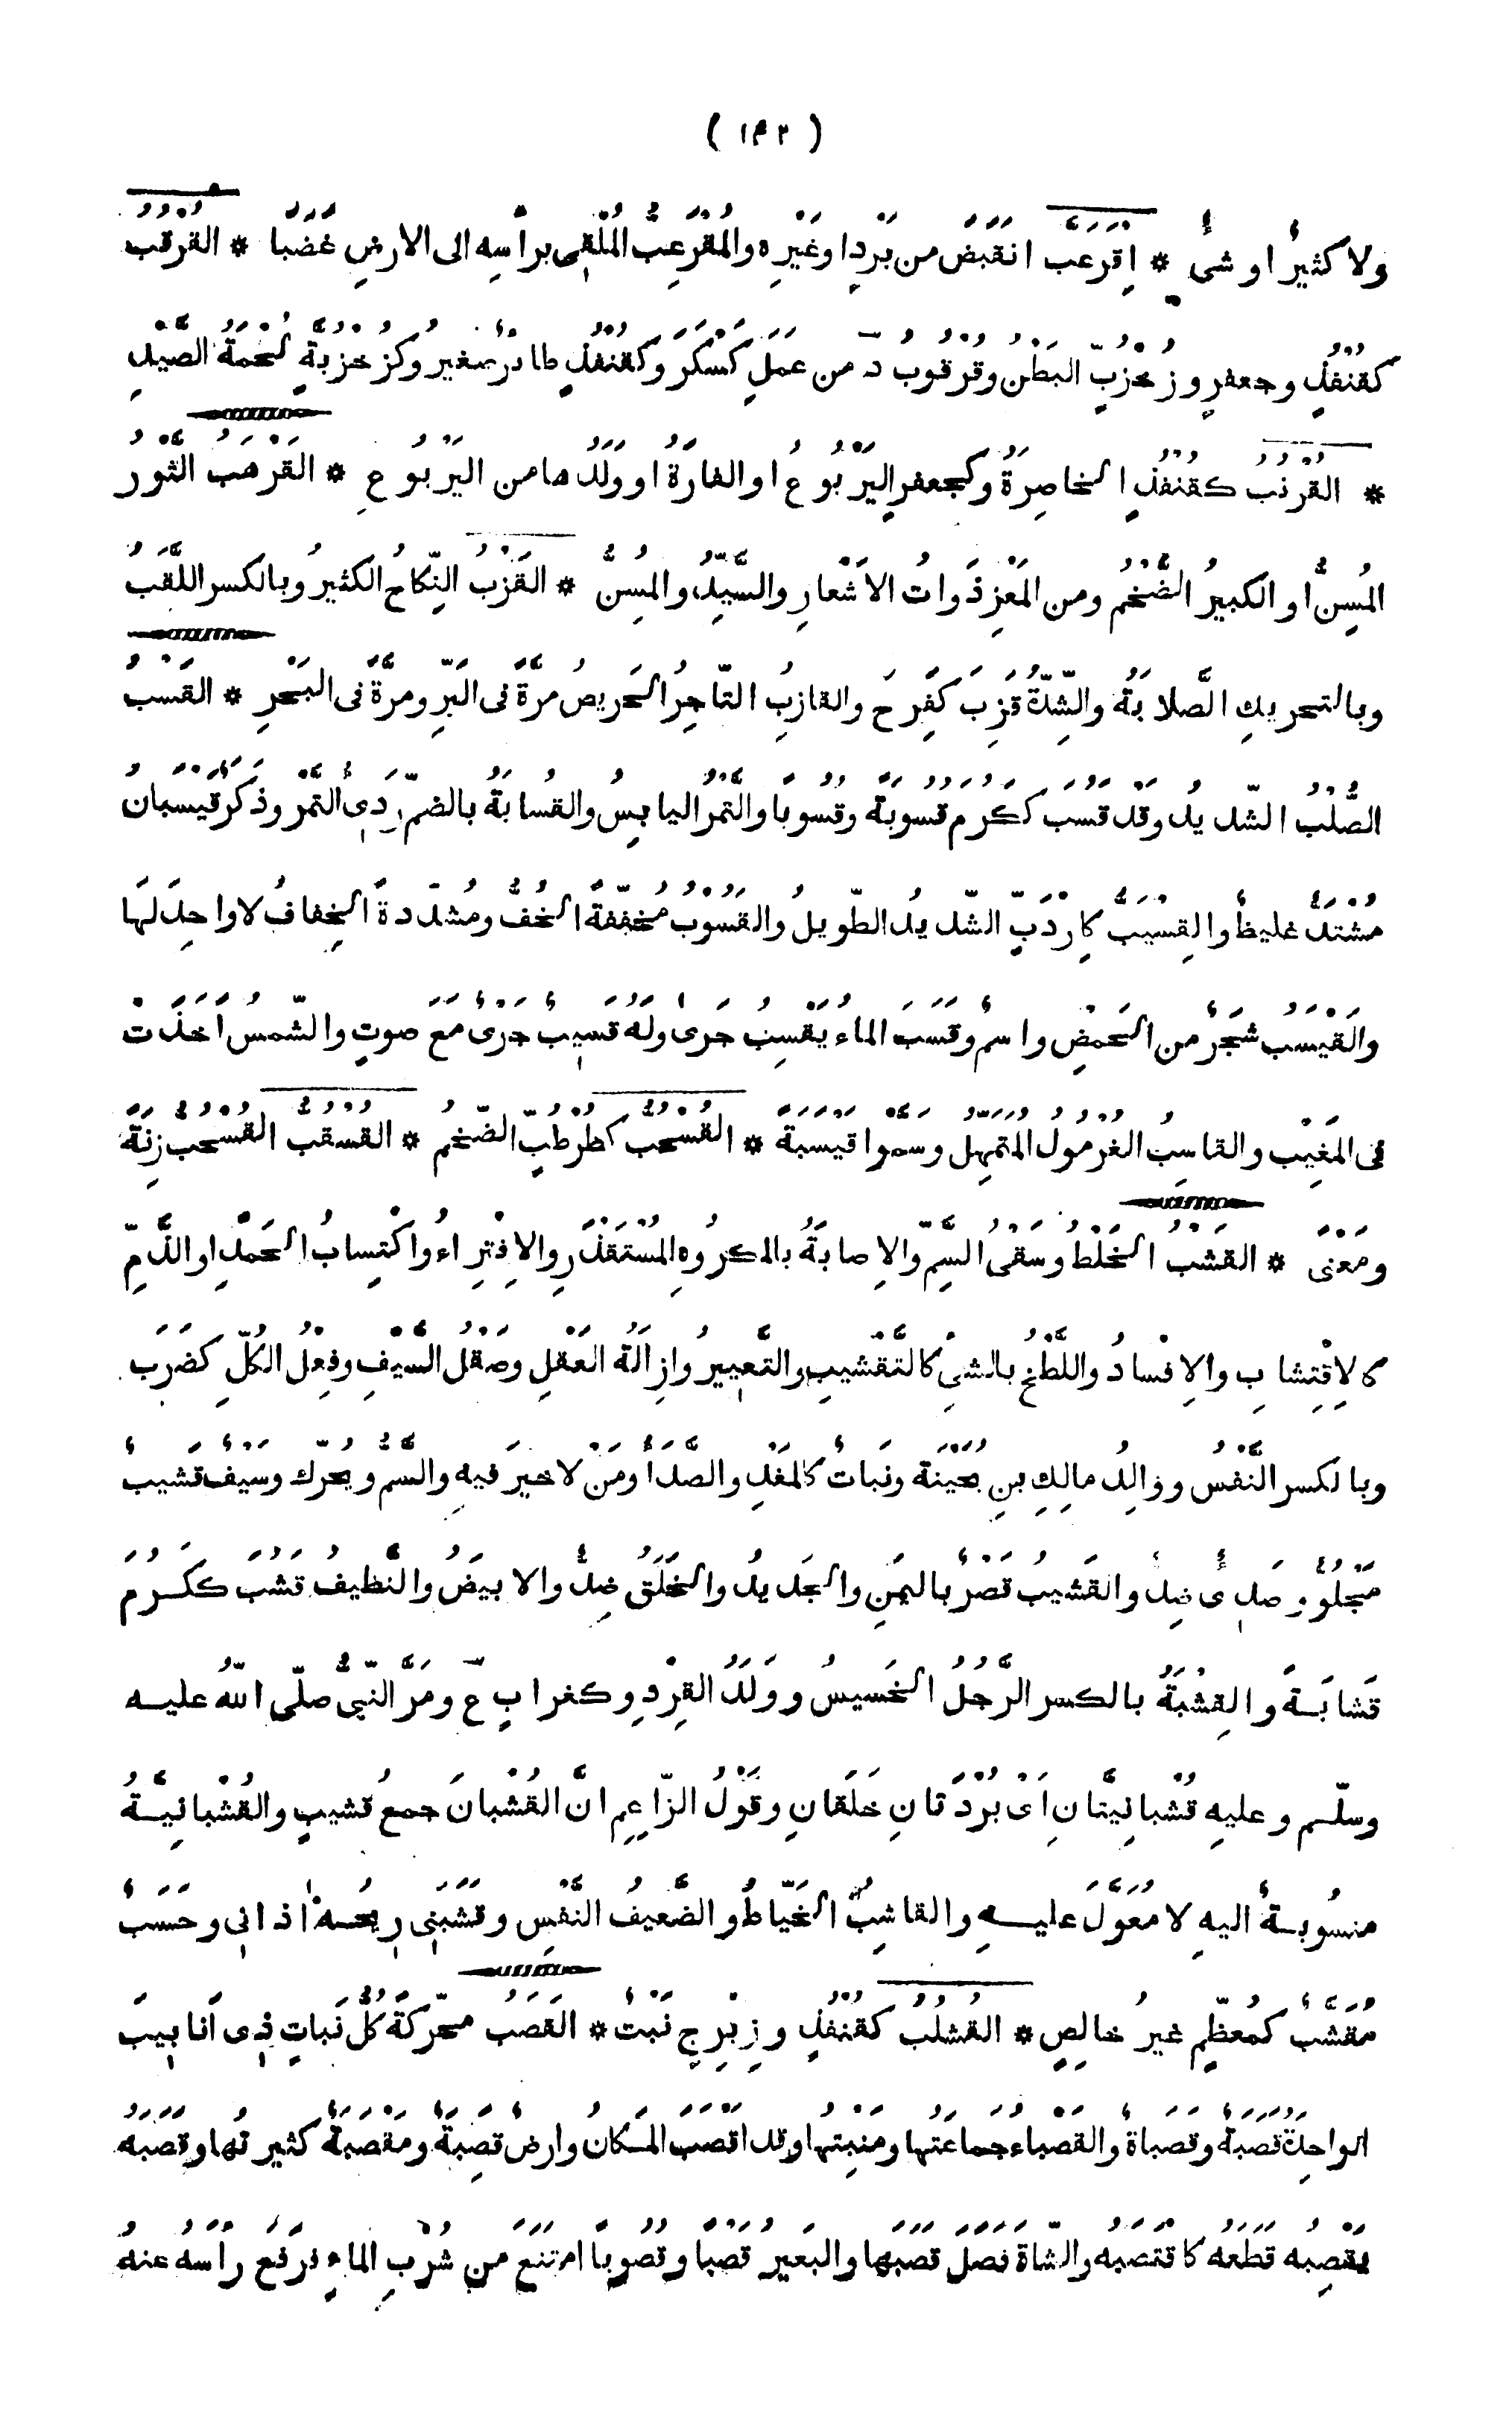 ( ١٣٢ )
ولا كثيرٌ او شئٌ * اِقرعبَ انقَبضَ من بَرْدٍ اوغَيْرِه والمُقْرَعِبُّ المُلْقِى برأسِه الى الارضِ غضَبًا * القُرقُبُ
كقُنفُذٍ وجعفرٍ وزُخْرُبٍّ البَطْنُ وقُرقُوبُ د من عَمَلِ كَسْكَرَ وكقُنْفُذٍ طائرٌ صغيرٌ وكزُخْزُبَّةٍ لُحْمَةُ الصَّيْدِ
* القُرْنُبُ كقُنْفُذٍ الخاصِرَةُ وكجعفرٍ اليَرْبُوعُ او الفارَةُ او ولَدُها من اليَربُوعِ * القَرْهَبُ الثَّوْرُ
المُسِنُّ او الكبيرُ الضَّخْمُ ومن المَعْزِ ذَواتُ الاَشْعارِ والسَّيِّدُ والمُسِنُّ * القَزْبُ النِّكاحُ الكثيرُ وبالكسر اللَّقَبُ
وبالتحريكِ الصَّلابَةُ والشِّدَّةُ قَزِبَ كفَرِحَ والقازِبُ التّاجِرُ الحَريصُ مرَّةً فى البَرِّ ومرَّةً فى البَحْرِ * القَسْبُ
الصُّلْبُ الشّديدُ وقَدْ قَسُبَ ككَرُمَ قُسُوبَةً وقُسُوبًا والتَّمْرُ اليابِسُ والقُسابَةُ بالضمّ رَدِىُّ التَّمْرِ وذَكَرٌ قَيْسَبانٌ
مُشْتَدٌّ غليظٌ والقِسْيَبُّ كاِرْدَبٍّ الشّديدُ الطّويلُ والقَسُّوْبُ مخفَّفَةً الخُفُّ ومشدّدةً الخِفافُ لا واحِدَ لها
والقَيْسَبُ شَجَرٌ من الحَمْضِ واسمٌ وقَسَبَ الماءُ يَقْسِبُ جَرى ولَهُ قَسِيبٌ جَرْىٌ مَعَ صوتٍ والشّمسُ اخَذَتْ
فى المَغِيْبِ والقاسِبُ الغُرْمُولُ المُتْمَهِلُّ وسَمَّوْا قَيْسَبَةَ * القُسْحُبُّ كطُرْطُبٍّ الضّخْمُ * القُسْقُبُّ القُسْحُبُّ زِنَةً
ومَعْنًى * القَشْبُ الخَلْطُ وسقْىُ السَّمِّ والاِصابَةُ بالمكرُوهِ المُسْتَقْذَرِ والاِفْتِراءُ واكْتِسابُ الحَمْدِ او الذَّمِّ
كالاِقْتِشابِ والاِفْسادُ واللَّطْخُ بالشئِ كالتَّقشيبِ والتَّعْييرُ وازالَةُ العَقْلِ وصَقْلُ السَّيْفِ وفِعْلُ الكُلِّ كضَرَبَ
وبالكسر النَّفْسُ ووالِدُ مالِكِ بنِ بُحَيْنَةَ ونَباتٌ كالمَغْدِ والصَّدَأُ ومَنْ لاخَيرَ فيهِ والسَّمُّ ويُحرّك وسَيفٌ قَشِيبٌ
مَجْلُوٌّ وصَدِئٌ ضِدٌّ والقَشِيبُ قَصْرٌ باليَمَنِ والجَديدُ والخَلَقُ ضِدٌّ والابيَضُ والنَّظيفُ قَشُبَ ككَرُمَ
قَشابَةً والقِشْبَةُ بالكسر الرَّجُلُ الخَسيسُ ووَلَدُ القِرْدِ وكغُرابٍ ع ومَرَّ النّبىُّ صلّى اللهُ عليه
وسلّم وعليهِ قُشْبانِيَّتانِ اَىْ بُرْدَتانِ خَلَقانِ وقَوْلُ الزّاعِمِ انَّ القُشْبانَ جمعُ قَشيبٍ والقُشْبانيَّةُ
منسُوبةٌ اليهِ لا مُعَوَّلَ عليهِ والقاشِبُ الخَيّاطُ والضَّعيفُ النَّفْسِ وقَشَبَنِى رِيحُهُ اذانِى وحَسَبٌ
مُقَشَّبٌ كمُعَظَّمٍ غيرُ خالِصٍ * القُشْلُبُ كقُنْفُذٍ وزِبْرِجٍ نَبْتٌ * القَصَبُ محرّكَةً كُلُّ نَباتٍ ذِى اَنابِيبَ
الواحِدَةُ قَصَبَةٌ وقَصَباةٌ والقَصْباءُ جماعَتُها ومَنْبِتُها وقد اَقْصَبَ المَكانُ وارضٌ قَصِبَةٌ ومَقْصَبَةٌ كثيرتُها وقَصَبَهُ
يَقْصِبُه قَطَعَه كاقتَصَبَه والشّاةَ فَصَلَ قَصَبَها والبَعيرُ قَصْبًا وقُصُوبًا امتَنَعَ من شُرْبِ الماءِ فرَفَعَ رَأْسَه عنه